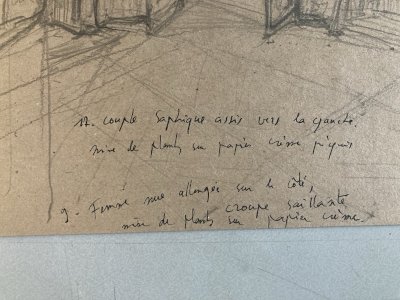 17. couple saphique assis vers la gauche
mine de plomb sur papier crème piqués
9. Femme nue allongée sur le côté,
croupe saillante
mine de plomb sur papier crème